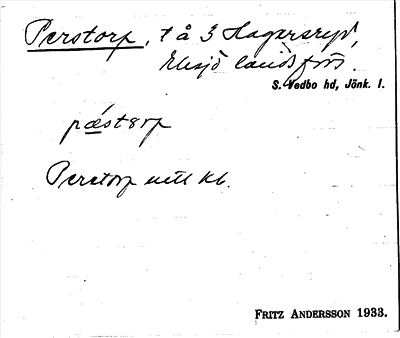 Perstorp, 7 å 3 Hagarsryd,
Eksjö landsförs.
S. Vedbo hd, Jönk. l.
pæstɛrp
Perstorp uttl kb.
FRITZ ANDERSSON 1933.